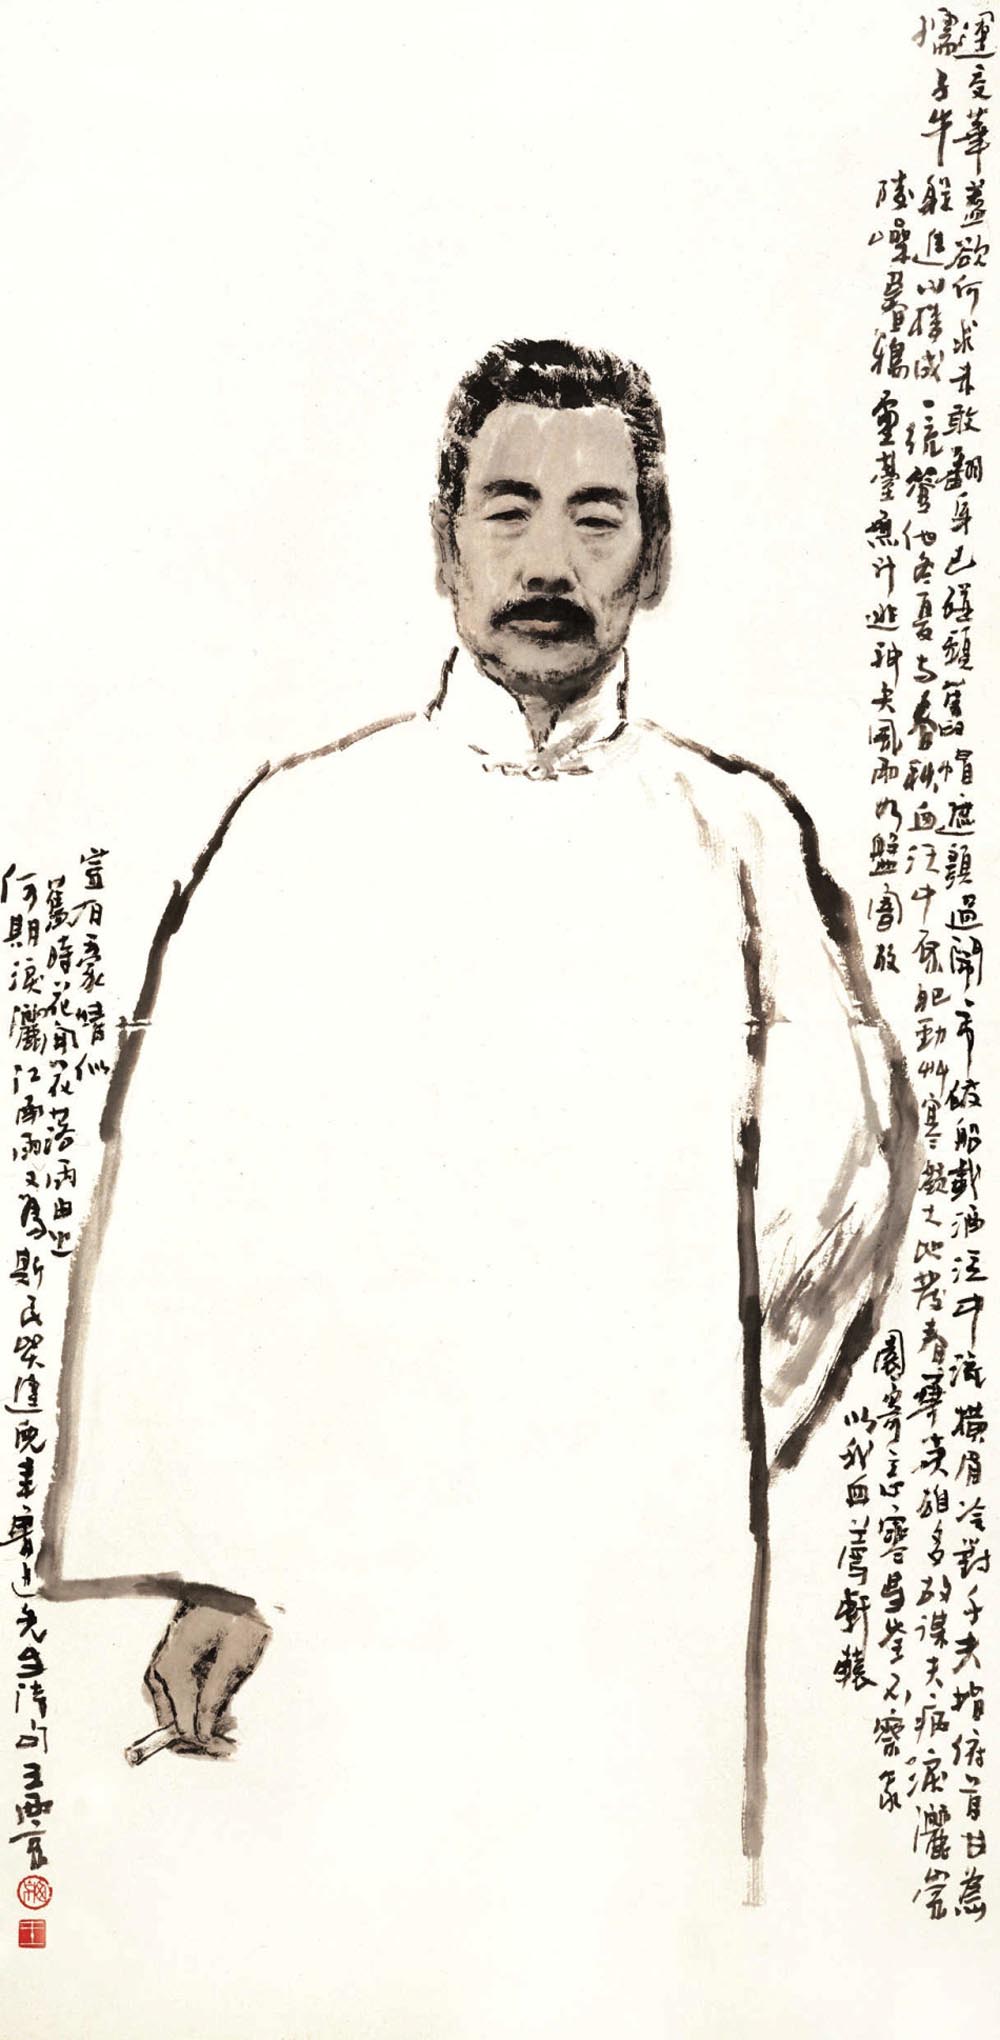 運交華蓋欲何求未敢翻身已碰頭舊帽遮顏過鬧市破船載酒泛中流橫眉冷對千夫指俯首甘為
孺子牛躲進小樓成一統管他冬夏與春秋血沃中原肥勁草寒凝大地發春華英雄多故謀夫病淚灑崇
陵噪暮鴉靈臺無計逃神矢風雨如磐闇故
園寄意寒星荃不察我
以我血薦軒轅
豈有豪情似
舊時花開花落兩由之
何期淚灑江南雨又為斯民哭健兒書魯迅先生詩句王西京
王